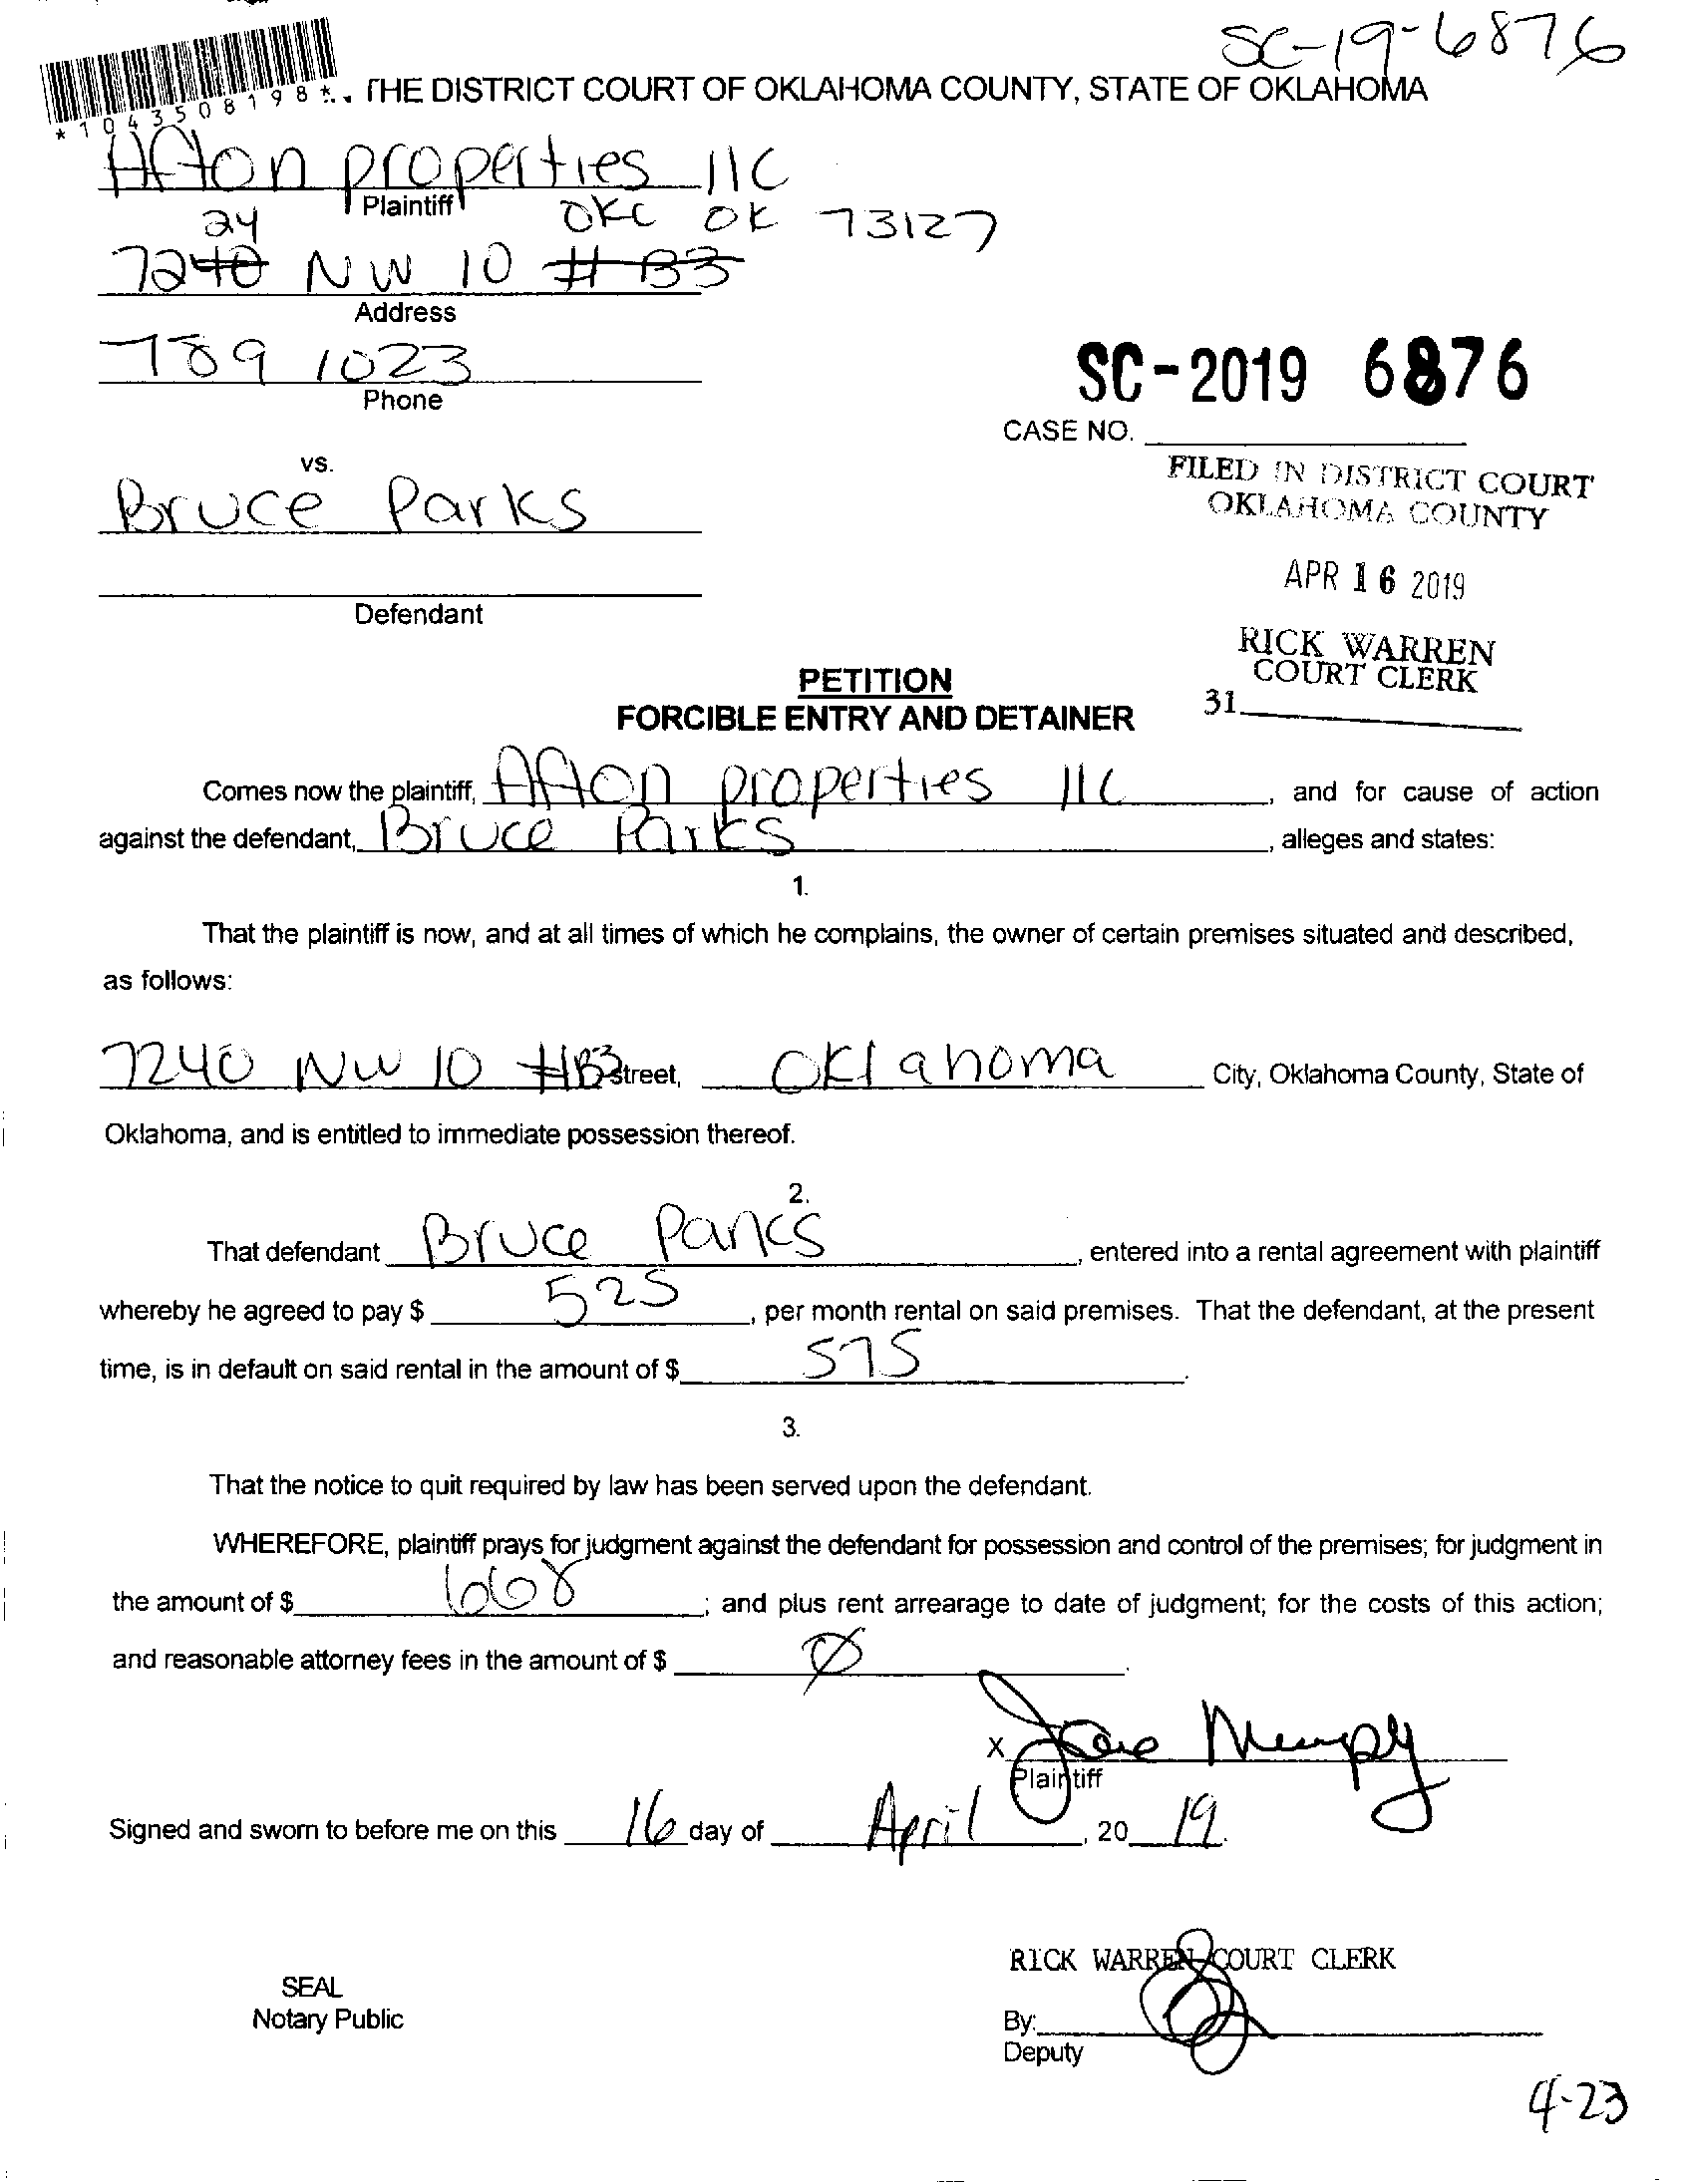 SC-19-6876
*1043508198*
THE DISTRICT COURT OF OKLAHOMA COUNTY, STATE OF OKLAHOMA
Afton properties llc
Plaintiff
OKC OK 73127
24
7240 NW 10 # B3
Address
789 1023
Phone
SC-2019 6876
CASE NO.
vs.
FILED IN DISTRICT COURT
OKLAHOMA COUNTY
Bruce Parks
APR 16 2019
Defendant
RICK WARREN
COURT CLERK
31
PETITION
FORCIBLE ENTRY AND DETAINER
Comes now the plaintiff, Afton properties llc, and for cause of action
against the defendant, Bruce Parks, alleges and states:
1.
That the plaintiff is now, and at all times of which he complains, the owner of certain premises situated and described,
as follows:
7240 NW 10 #B3 Street, Oklahoma City, Oklahoma County, State of
Oklahoma, and is entitled to immediate possession thereof.
2.
That defendant Bruce Parks, entered into a rental agreement with plaintiff
whereby he agreed to pay $ 525, per month rental on said premises. That the defendant, at the present
time, is in default on said rental in the amount of $ 575.
3.
That the notice to quit required by law has been served upon the defendant.
WHEREFORE, plaintiff prays for judgment against the defendant for possession and control of the premises; for judgment in
the amount of $ 668; and plus rent arrearage to date of judgment; for the costs of this action;
and reasonable attorney fees in the amount of $ Ø.
X
Plaintiff
Signed and sworn to before me on this 16 day of April, 20 19.
RICK WARREN COURT CLERK
SEAL
Notary Public
By:
Deputy
4-23